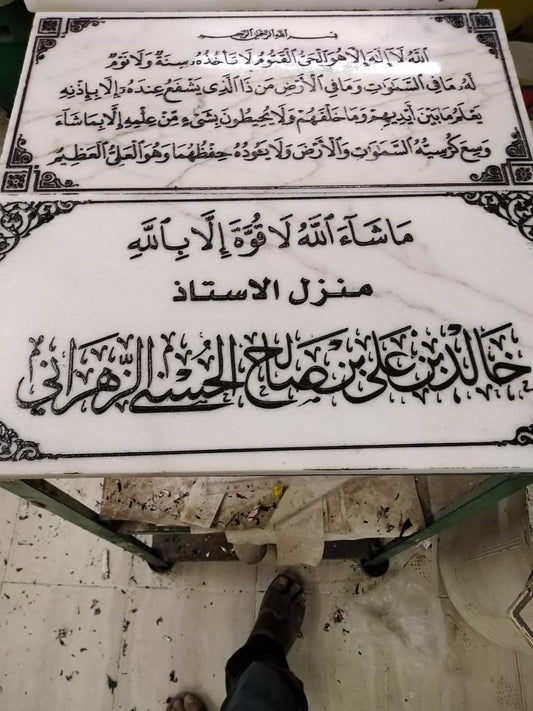 بسم الله الرحمن الرحيم
ٱللَّهُ لَا إِلَٰهَ إِلَّا هُوَ ٱلْحَىُّ ٱلْقَيُّومُ لَا تَأْخُذُهُۥ سِنَةٌ وَلَا نَوْمٌ
لَهُۥ مَا فِى ٱلسَّمَٰوَٰتِ وَمَا فِى ٱلْأَرْضِ مَن ذَا ٱلَّذِى يَشْفَعُ عِندَهُۥٓ إِلَّا بِإِذْنِهِ
يَعْلَمُ مَا بَيْنَ أَيْدِيهِمْ وَمَا خَلْفَهُمْ وَلَا يُحِيطُونَ بِشَىْءٍ مِّنْ عِلْمِهِ إِلَّا بِمَا شَاءَ
وَسِعَ كُرْسِيُّهُ ٱلسَّمَٰوَٰتِ وَٱلْأَرْضَ وَلَا يَـُٔودُهُۥ حِفْظُهُمَا وَهُوَ ٱلْعَلِىُّ ٱلْعَظِيمُ
مَا شَآءَ ٱللَّهُ لَا قُوَّةَ إِلَّا بِٱللَّهِ
منزل الاستاذ
خَالِد بن عَلي بن صَالح الحُسْني الزَّهرَاني